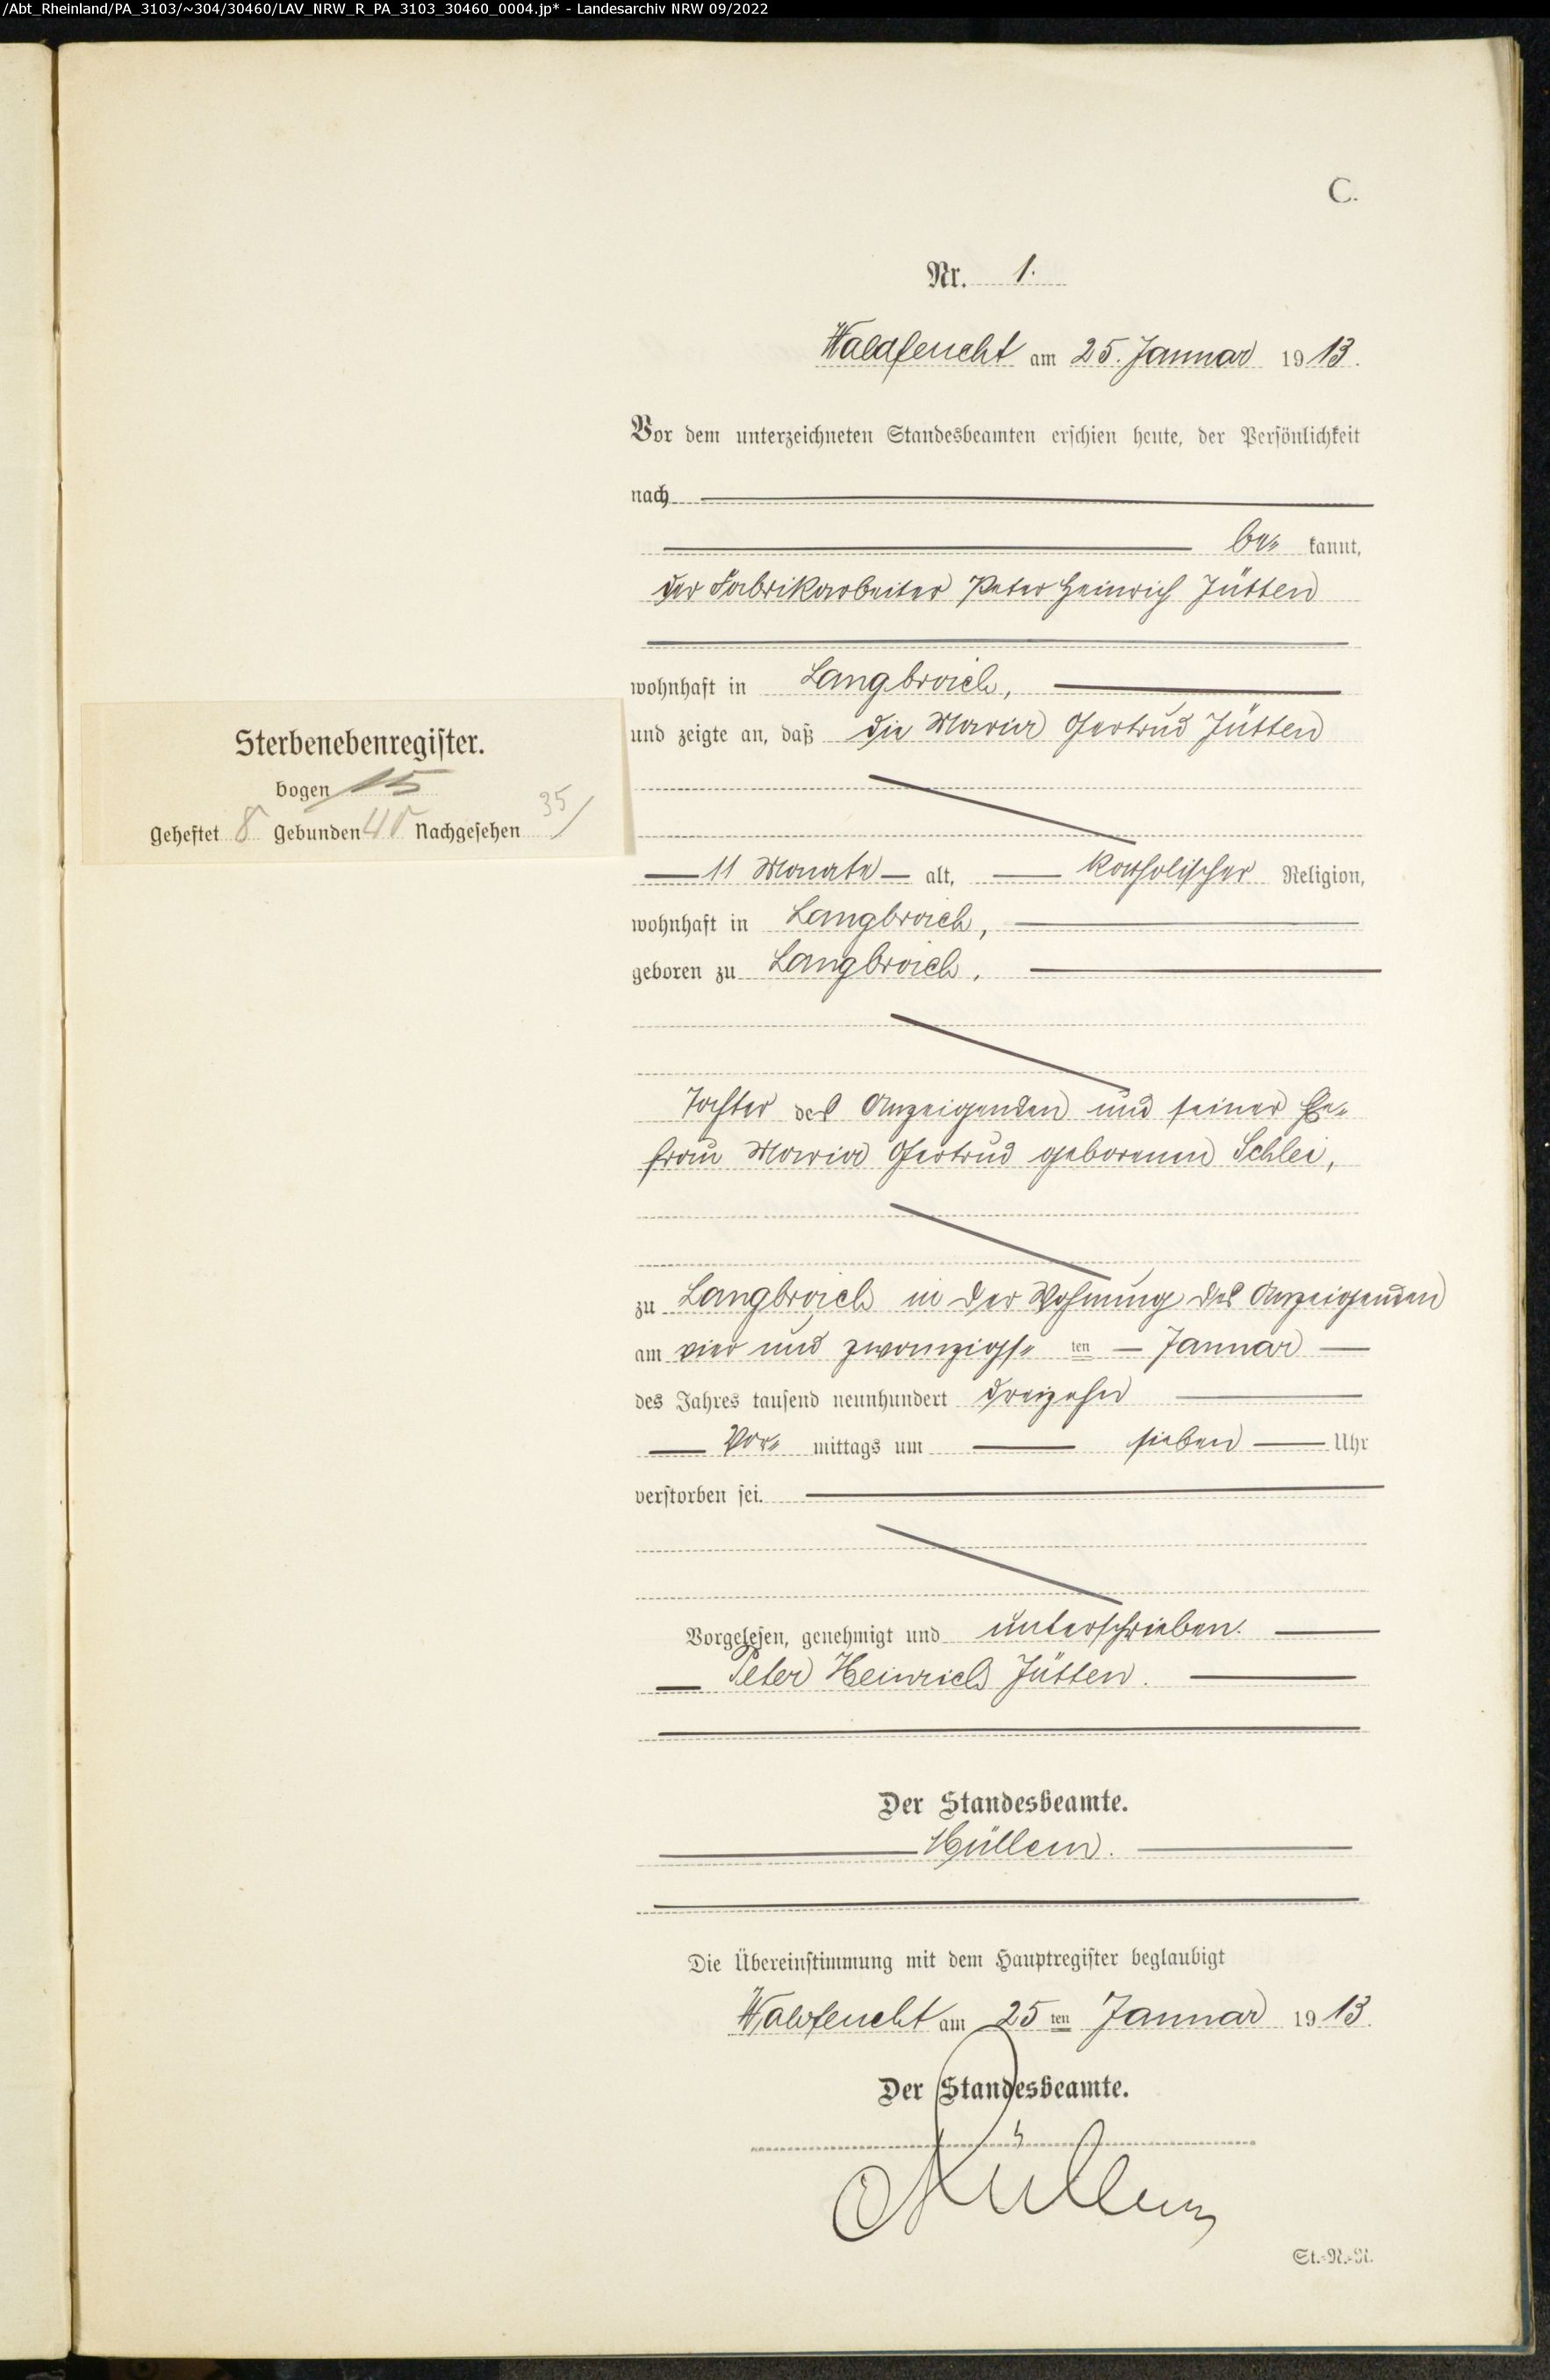 /Abt_Rheinland/PA_3103/~304/30460/LAV_NRW_R_PA_3103_30460_0004.jp* - Landesarchiv NRW 09/2022
C.
Nr. 1.
Waldfeucht am 25. Januar 1913.
Vor dem unterzeichneten Standesbeamten erschien heute, der Persönlichkeit
nach
be= kannt,
der Fabrikarbeiter Peter Heinrich Jütten
wohnhaft in Langbroich,
und zeigte an, daß die Maria Gertrud Jütten
Sterbenebenregister.
bogen 15
Geheftet 8 Gebunden 40 Nachgesehen 35
11 Monate alt, katholischer Religion,
wohnhaft in Langbroich,
geboren zu Langbroich,
Tochter des Anzeigenden und seiner Ehe=
frau Maria Gertrud geborenen Schlei,
zu Langbroich in der Wohnung des Anzeigenden
am vier und zwanzigs= ten Januar
des Jahres tausend neunhundert dreizehn
Vor= mittags um sieben Uhr
verstorben sei.
Vorgelesen, genehmigt und unterschrieben.
Peter Heinrich Jütten.
Der Standesbeamte.
Müllem.
Die Übereinstimmung mit dem Hauptregister beglaubigt
Waldfeucht am 25ten Januar 1913.
Der Standesbeamte.
St.=N.=R.